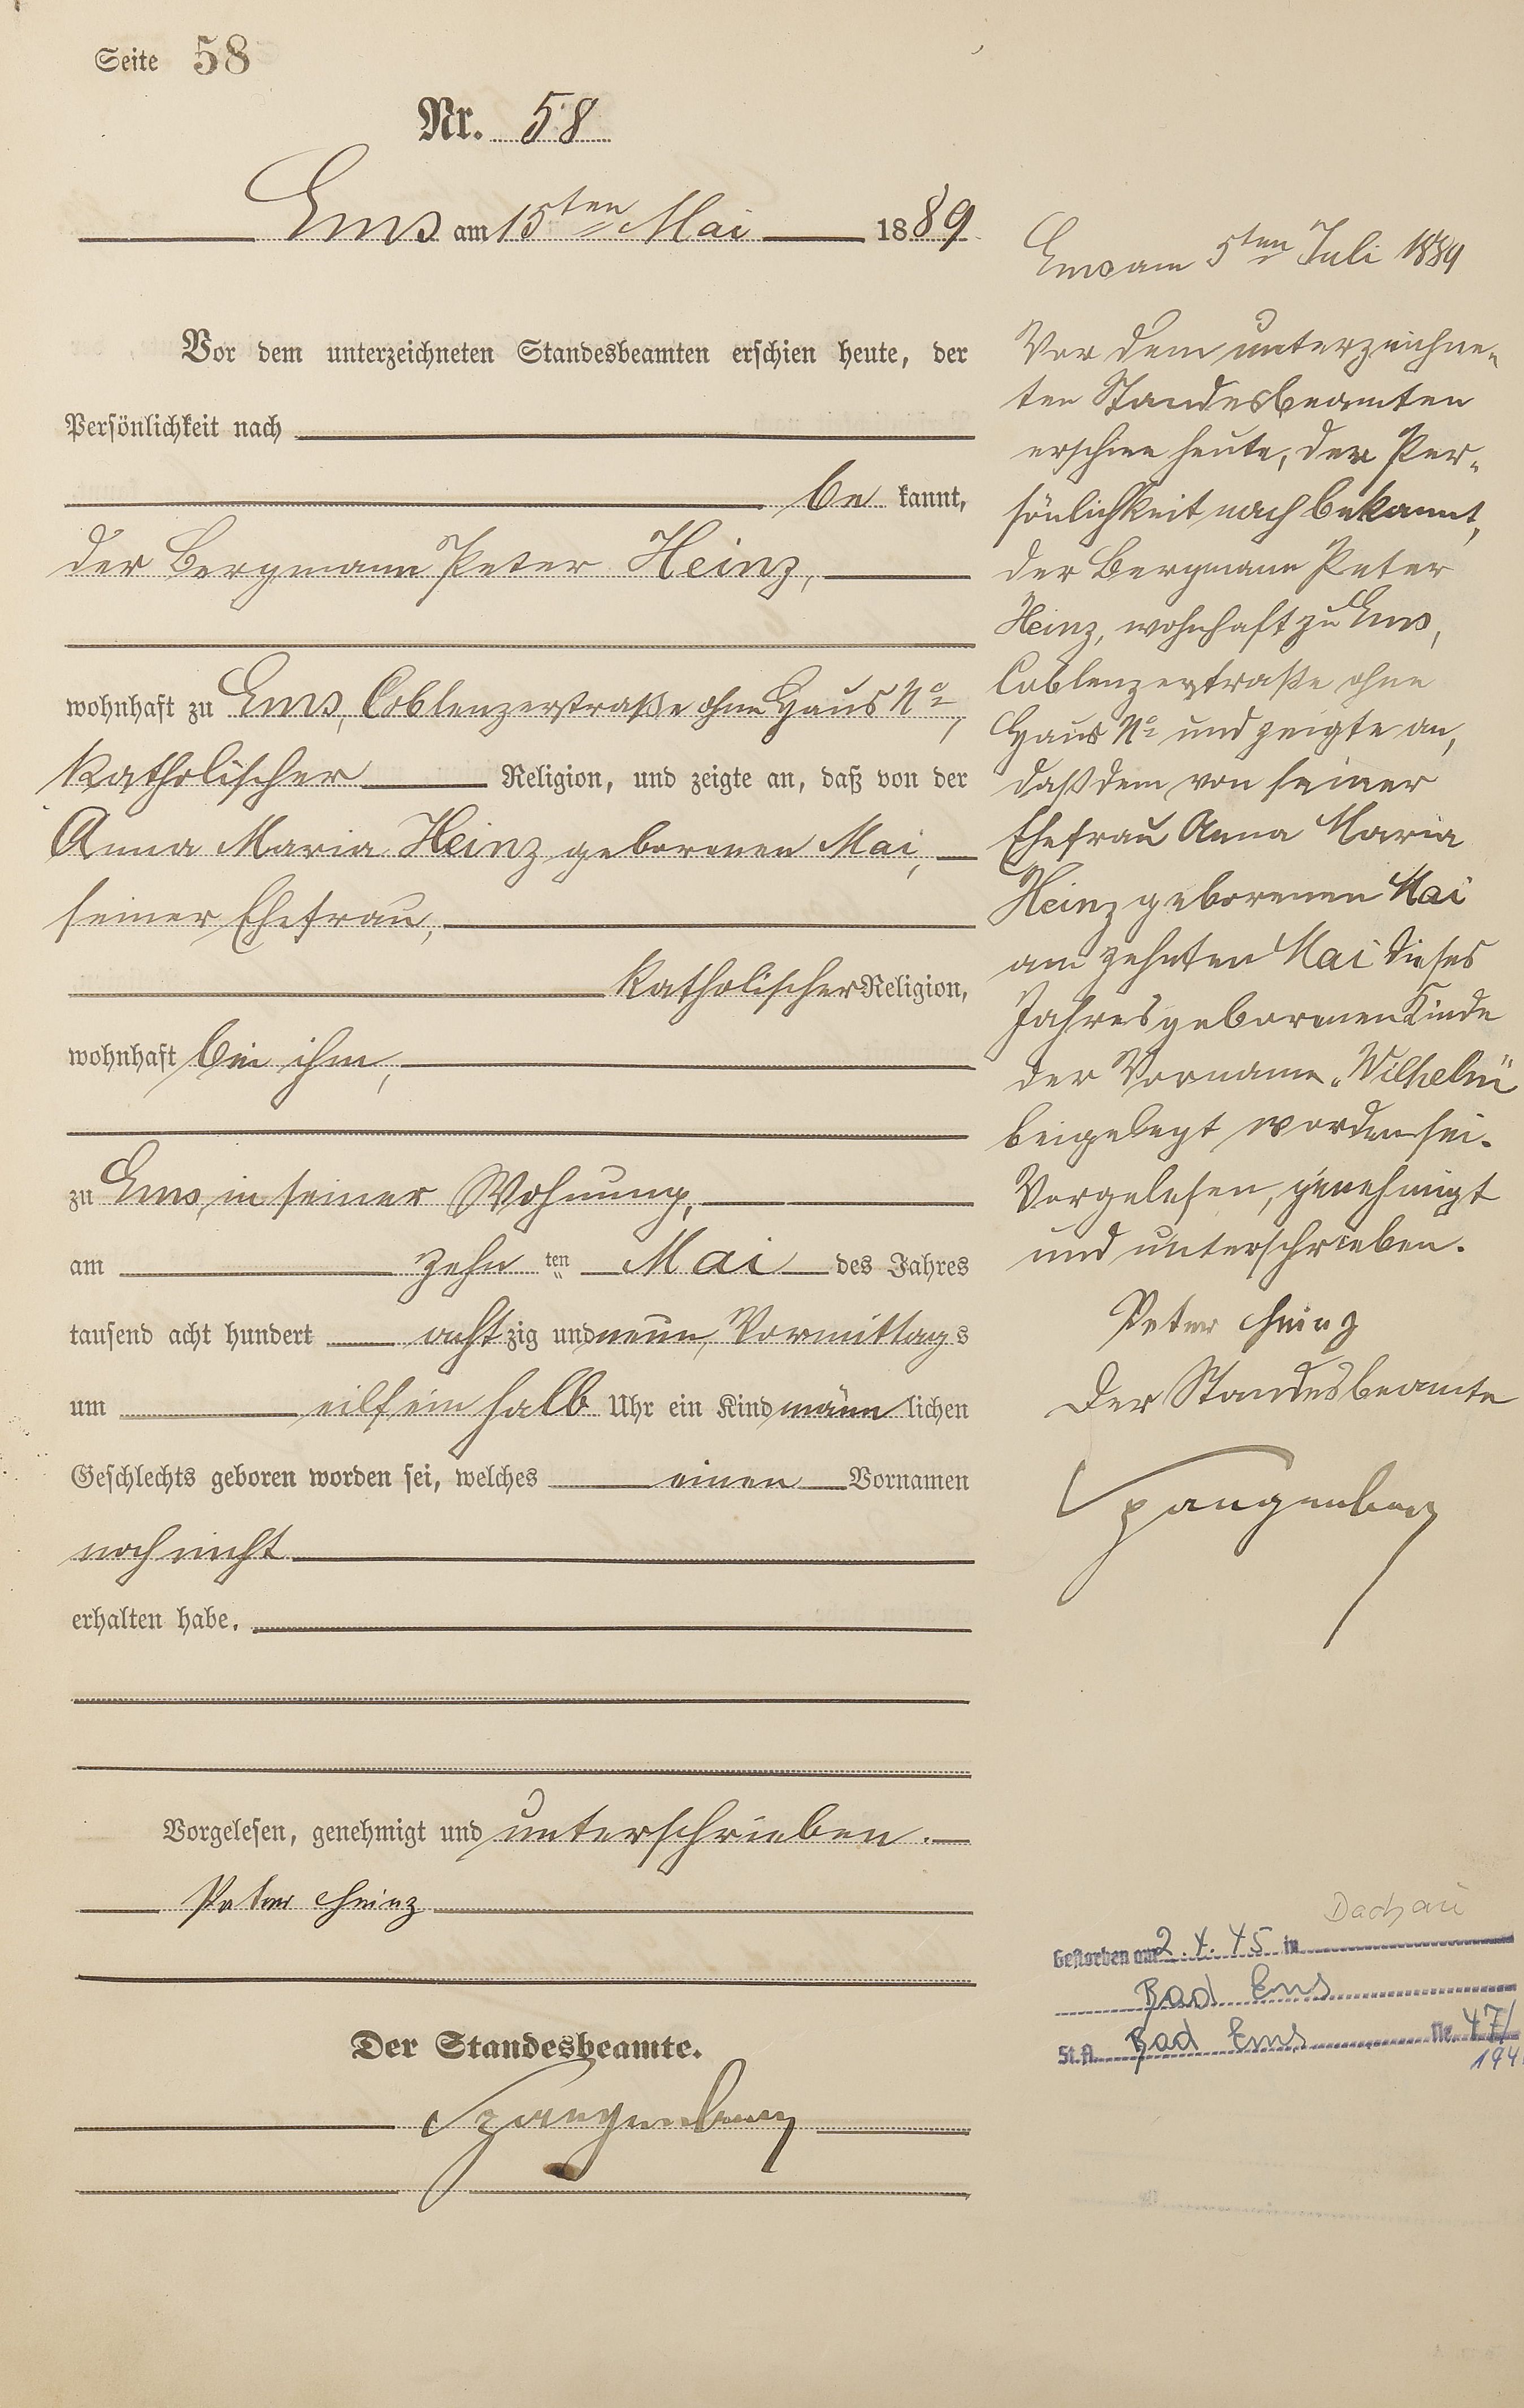 Seite 58
Nr. 58
Ems am 15ten Mai 1889
Vor dem unterzeichneten Standesbeamten erschien heute, der
Persönlichkeit nach
be kannt,
der Bergmann Peter Heinz,
wohnhaft zu Ems, Coblenzerstraße ohne Haus No,
katholischer Religion, und zeigte an, daß von der
Anna Maria Heinz geborenen Mai,
seiner Ehefrau,
katholischer Religion,
wohnhaft bei ihm,
zu Ems, in seiner Wohnung,
am zehn ten Mai des Jahres
tausend acht hundert acht zig und neun, Vormittags
um eilf ein halb Uhr ein Kind männ lichen
Geschlechts geboren worden sei, welches einen Vornamen
noch nicht
erhalten habe.
Vorgelesen, genehmigt und unterschrieben.
Peter Heinz
Der Standesbeamte.
Spangenberg
Ems am 5ten Juli 1889
Vor dem unterzeichne-
ten Standesbeamten
erschien heute, der Per-
sönlichkeit nach bekannt,
der Bergmann Peter
Heinz, wohnhaft zu Ems,
Coblenzerstraße ohne
Haus No und zeigte an,
daß dem von seiner
Ehefrau Anna Maria
Heinz geborenen Mai
am zehnten Mai dieses
Jahres geborenen Kinde
der Vorname „Wilhelm“
beigelegt worden sei.
Vorgelesen, genehmigt
und unterschrieben.
Peter Heinz
Der Standesbeamte
Spangenberg
Dachau
Gestorben am 2.4.45 in
Bad Ems
St.A. Bad Ems Nr. 47/
194